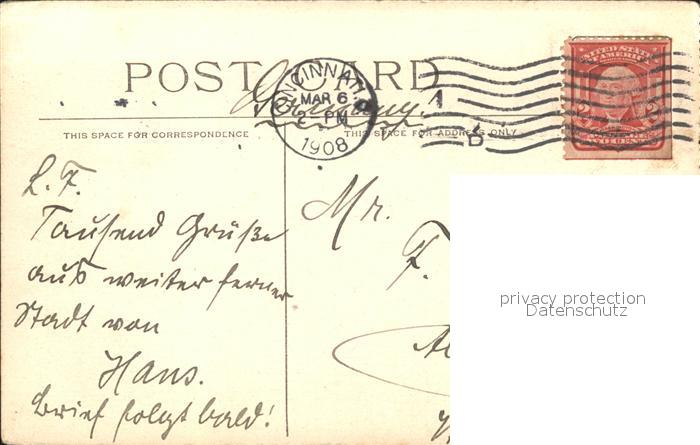 POST CARD
Germany.
CINCINNATI, O.
MAR 6
2 PM
1908
A
UNITED STATES
OF AMERICA
THIS SPACE FOR CORRESPONDENCE
THIS SPACE FOR ADDRESS ONLY
L. F.
Tausend Grüße
aus weiter ferner
Stadt von
Hans.
Brief folgt bald!
Mr.
F.
privacy protection
Datenschutz